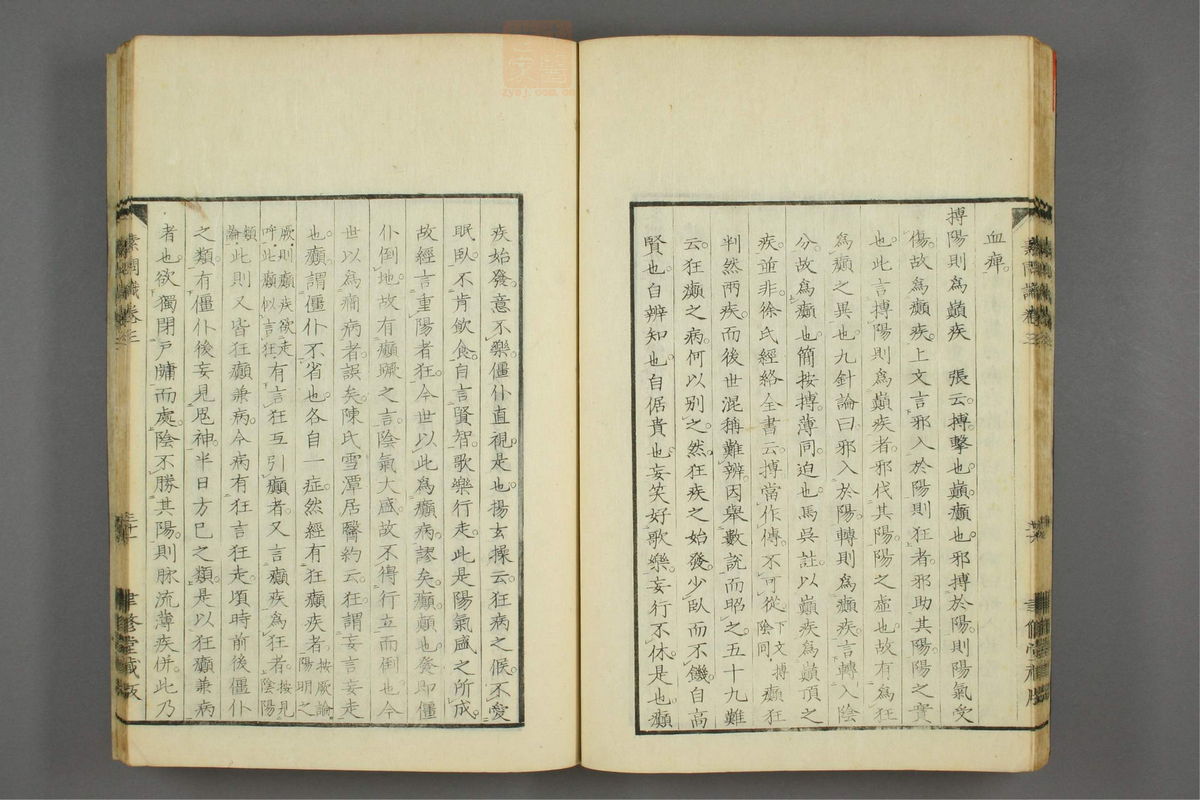 血痺。
搏陽則為巓疾　張云。搏擊也。巓癲也。邪搏於陽。則陽氣受
傷。故為癲疾。上文言邪入於陽則狂者。邪助其陽。陽之實
也。此言搏陽則為巓疾者。邪伐其陽。陽之虛也。故有為狂
為癲之異也。九針論曰。邪入於陽。轉則為癲疾。言轉入陰
分。故為癲也。簡按搏薄同。迫也。馬吳註。以巓疾為巓頂之
疾。並非。徐氏經絡全書云。搏當作傅。不可從。下文搏陰同。癲狂
判然兩疾。而後世混稱難辨。因舉數說而昭之。五十九難
云。狂癲之病。何以別之。然狂疾之始發。少臥而不饑。自高
賢也。自辨知也。自倨貴也。妄笑好歌樂。妄行不休是也。癲
疾始發。意不樂。僵仆直視。是也。揚玄操云。狂病之候。不愛
眠臥。不肯飲食。自言賢智。歌樂行走。此是陽氣盛之所成。
故經言重陽者狂。今世以此為癲病。謬矣。癲。顛也。發即僵
仆倒地。故有癲蹶之言。陰氣大盛。故不得行立而倒也。今
世以為癇病者誤矣。陳氏雪潭居醫約云。狂謂妄言妄走
也。癲謂僵仆不省也。各自一症。然經有狂癲疾者。按厥論陽明之
厥。則癲疾欲走呼。此癲似言狂。有言狂互引癲者。又言癲疾為狂者。按見陰陽
類論。此則又皆狂癲兼病。今病有狂言狂走。頃時前後僵仆
之類。有僵仆後妄見鬼神。半日方已之類。是以狂癲兼病
者也。欲獨閉戶牖而處。陰不勝其陽。則脉流薄疾。併。此乃
素問識卷三
聿修堂藏版